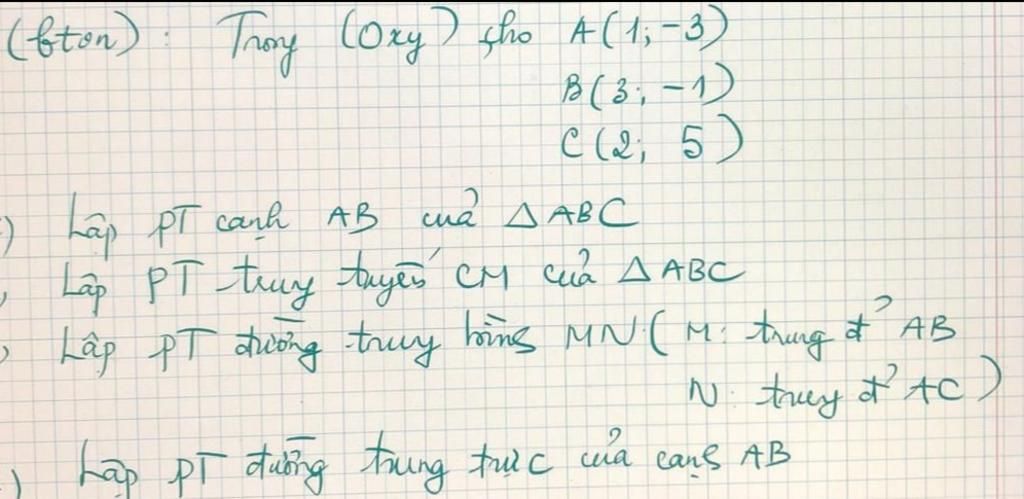 (bton): Trong (Oxy) cho A(1; -3)
B(3; -1)
C(2; 5)
) Lập PT cạnh AB của △ABC
, Lập PT trung tuyến CM của △ABC
, Lập PT đường trung bình MN (M: trung đ² AB
N: trung đ² AC)
) Lập PT đường trung trực của cạnh AB